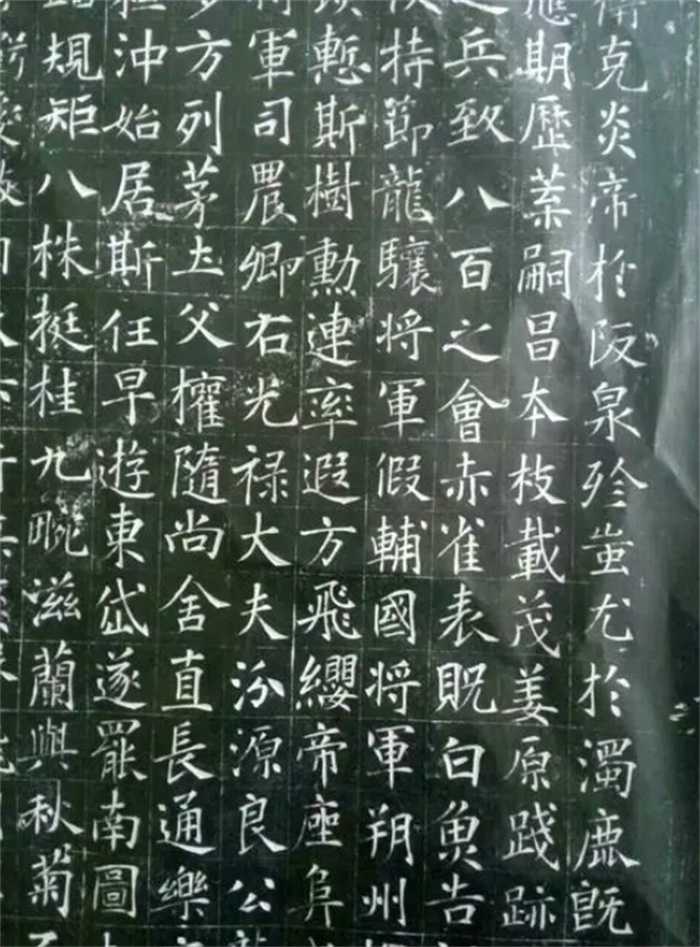 克炎帝於阪泉殄蚩尤於濁鹿既
期歷葉嗣昌本枝載茂姜原踐跡
兵致八百之會赤雀表貺白魚告
持節龍驤将軍假輔國将軍朔州
慙斯樹勳連率遐方飛纓帝座阜
軍司農卿右光禄大夫汾源良公
方列茅土父權隨尚舍直長通樂
沖始居斯任早遊東岱遂罷南圖
規矩八株挺桂九畹滋蘭與秋菊